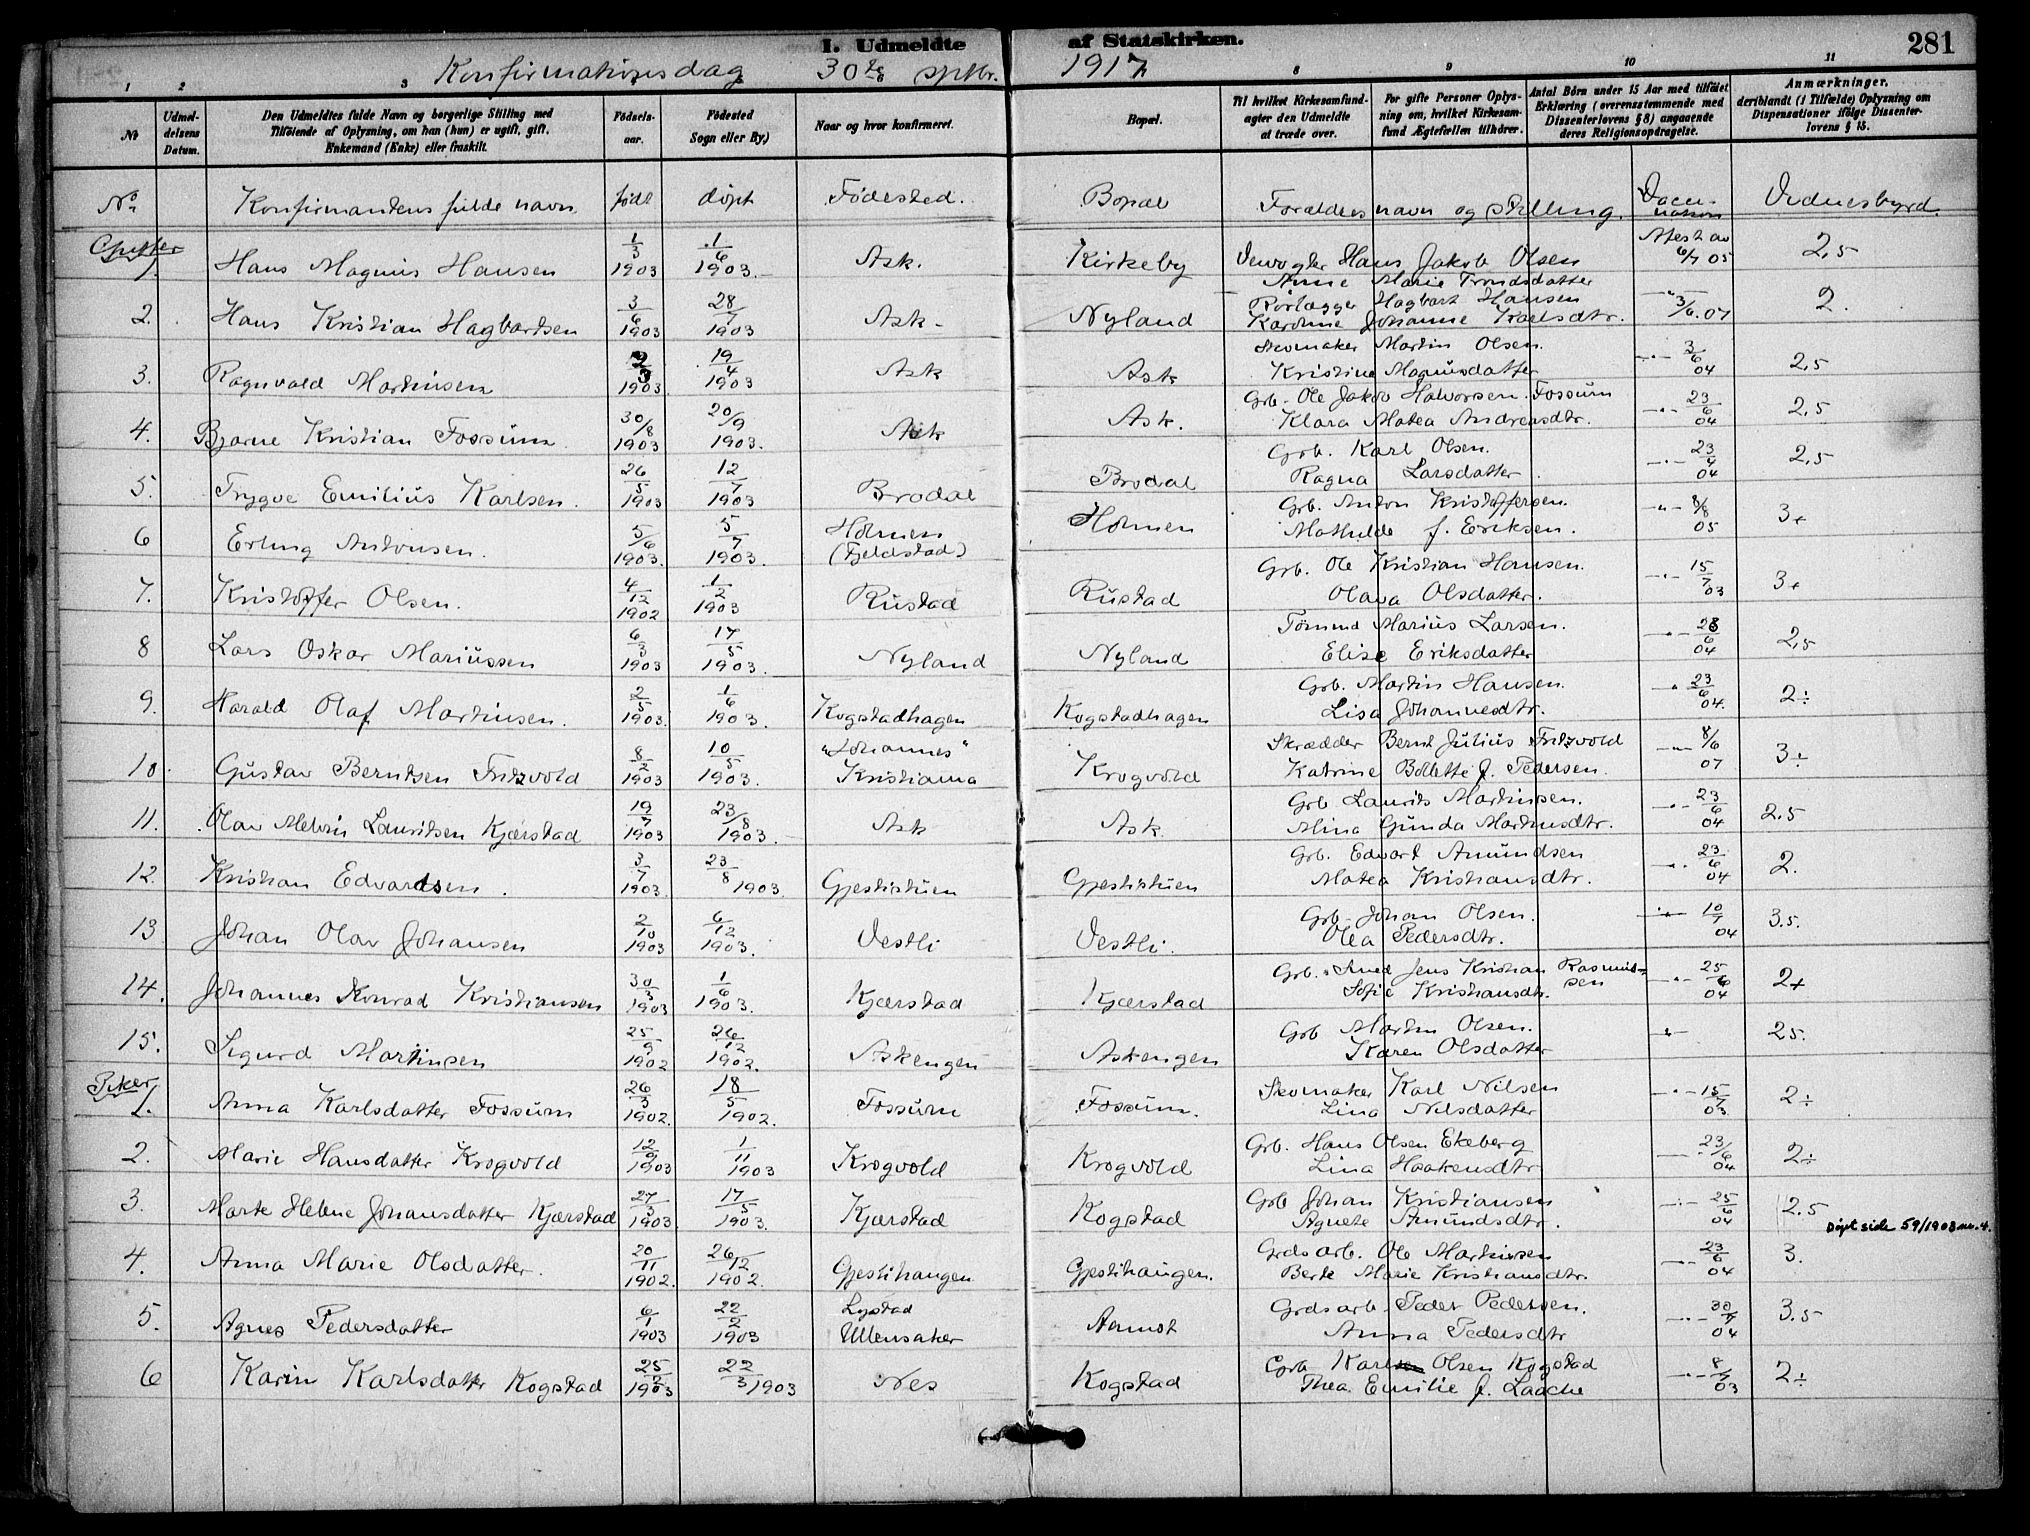 I. Udmeldte af Statskirken. 281
Konfirmationsdag 30te sptbr. 1917
1 2 3 8 9 10 11
No
Udmeldelsens Datum.
Den Udmeldtes fulde Navn og borgerlige Stilling med Tilføiende af Oplysning, om han (hun) er ugift, gift, Enkemand (Enke) eller fraskilt.
Fødselsaar.
Fødested Sogn eller By.)
Naar og hvor konfirmeret.
Bopæl.
Til hvilket Kirkesamfund agter den Udmeldte at træde over.
For gifte Personer Oplysning om, hvilket Kirkesamfund Ægtefællen tilhører.
Antal Börn under 15 Aar med tilføiet Erklæring (overensstemmende med Dissenterlovens § 8) angaaende deres Religionsopdragelse.
Anmærkninger, deriblandt (i Tilfælde) Oplysning om Dispensationer ifölge Dissenterlovens § 15.
No Konfirmantens fulde navn født døpt Fødested. Bopæl Forældres navn og stilling. Vaccination Vidnesbyrd.
Gutter
1. Hans Magnus Hansen 1/3 1903 1/6 1903. Ask. Kirkeby Hans Jakob Olsen Atest av 6/7 05 2,5
Anne Marie Trondsdatter
2. Hans Kristian Hagbartsen 3/6 1903 28/7 1903 Ask. Nyland Rørlægger Hagbart Hansen -"- 3/6. 07 2.
Karoline Johanne Kaelsdtr.
3. Ragnvald Martinsen 2/3 1903 19/4 1903 Ask Ask Skomaker Martin Olsen. -"- 3/6 04 2,5
Kristine Magnusdatter
4. Bjarne Kristian Fossum. 30/8 1903 20/9 1903. Ask Ask. Grb. Ole Jakob Halvorsen Fossum -"- 23/6 04 2,5
Klara Matea Andreasdtr.
5. Trygve Emilius Karlsen. 26/5 1903 12/7 1903 Brodal Brodal Grb. Karl Olsen. -"- 23/4 04 2,5
Ragna Larsdatter
6 Erling Antonsen. 5/6 1903. 5/7 1903. Holmen (Fjeldstad) Holmen Grb. Anton Kristoffersen. -"- 8/8 05 3+
Mathilde f. Eriksen.
7. Kristoffer Olsen. 4/12 1902 1/2 1903 Rustad Rustad Grb. Ole Kristian Hansen. -"- 15/7 03 3+
Olava Olsdatter.
8 Lars Oskar Mariussen 6/3 1903 17/5 1903. Nyland Nyland Tømmd Marius Larsen. -"- 23/6 04 2,5
Elise Eriksdatter
9. Harald Olaf Martinsen. 2/5 1903. 1/6 1903. Kogstadhagen Kogstadhagen Grb. Martin Hansen. -"- 23/6 04. 2÷
Lisa Johannesdtr.
10. Gustav Berntsen Fritzvold 8/2 1903 10/5 1903. "Johannes" Kristiania Krogvold Skrædder Bernt Julius Fritzvold -"- 8/6 07 3÷
Katrine Bollette f. Pedersen.
11. Olav Melvin Lauritsen Kjærstad 19/7 1903 23/8 1903. Ask Ask. Grb Laurits Martinsen. -"- 23/6 04 2.5
Alina Gunda Martinsdtr.
12. Kristian Edvardsen. 3/7 1903. 23/8 1903 Gjestistuen Gjestistuen Grb. Edvart Amundsen -"- 23/6 04 2.
Matea Kristiansdtr.
13 Johan Olav Johansen 2/10 1903 6/12 1903. Vestli Vestli. Grb. Johan Olsen. -"- 10/7 04 3.5.
Olea Pedersdtr.
14. Johannes Konrad Kristiansen 30/3 1903 1/6 1903. Kjærstad Kjærstad Grb. Smed Jens Kristian Rasmussen -"- 25/6 04 2+
Sofie Kristiansdtr.
15. Sigurd Martinsen 25/9 1902 26/12 1902. Askengen Askengen Grb Martin Olsen. -"- 25.
Karen Olsdatter
Piker
1. Anna Karlsdatter Fossum 26/3 1902. 18/5 1902. Fossum Fossum. Skomaker Karl Nilsen -"- 15/7 03 2÷
Lina Nilsdatter
2. Marie Hansdatter Krogvold 12/9 1903 1/11 1903 Krogvold Krogvold Grb. Hans Olsen Ekeberg -"- 23/6 04 2÷
Lina Haakensdtr
3. Marte Helene Johansdatter Kjærstad 27/3 1903. 17/5 1903. Kjærstad Kogstad Grb Johan Kristiansen -"- 25/6 04 2.5
Agnete Amundsdtr.
Døpt side 59/1903 nr. 4.
4. Anna Marie Olsdatter. 20/11 1902. 26/12 1902. Gjestihaugen Gjestihaugen. Grdsarb. Ole Martinsen -"- 23/6 04 3.
Berte Marie Kristiansdtr.
5. Agnes Pedersdatter 6/1 1903 22/2 1903 Lystad Ullensaker Aamot Grdsarb. Peder Pedersen. -"- 30/7 04 3.5
Anna Pedersdtr
6 Karin Karlsdatter Kogstad 25/2 1903 22/3 1903 Nes Kogstad Grb Karl Olsen Kogstad -"- 8/7 03 2÷
Thea Emilie f. Laache